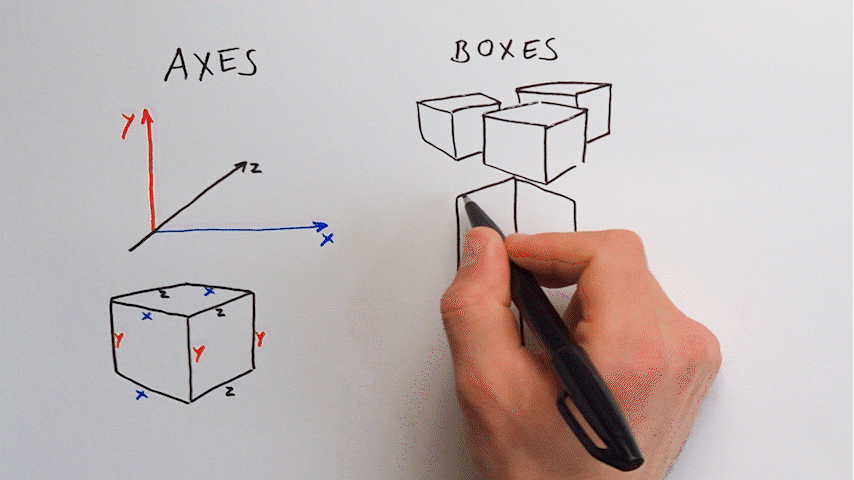 AXES
BOXES
Y
z
x
z x
x z
y y y
x z